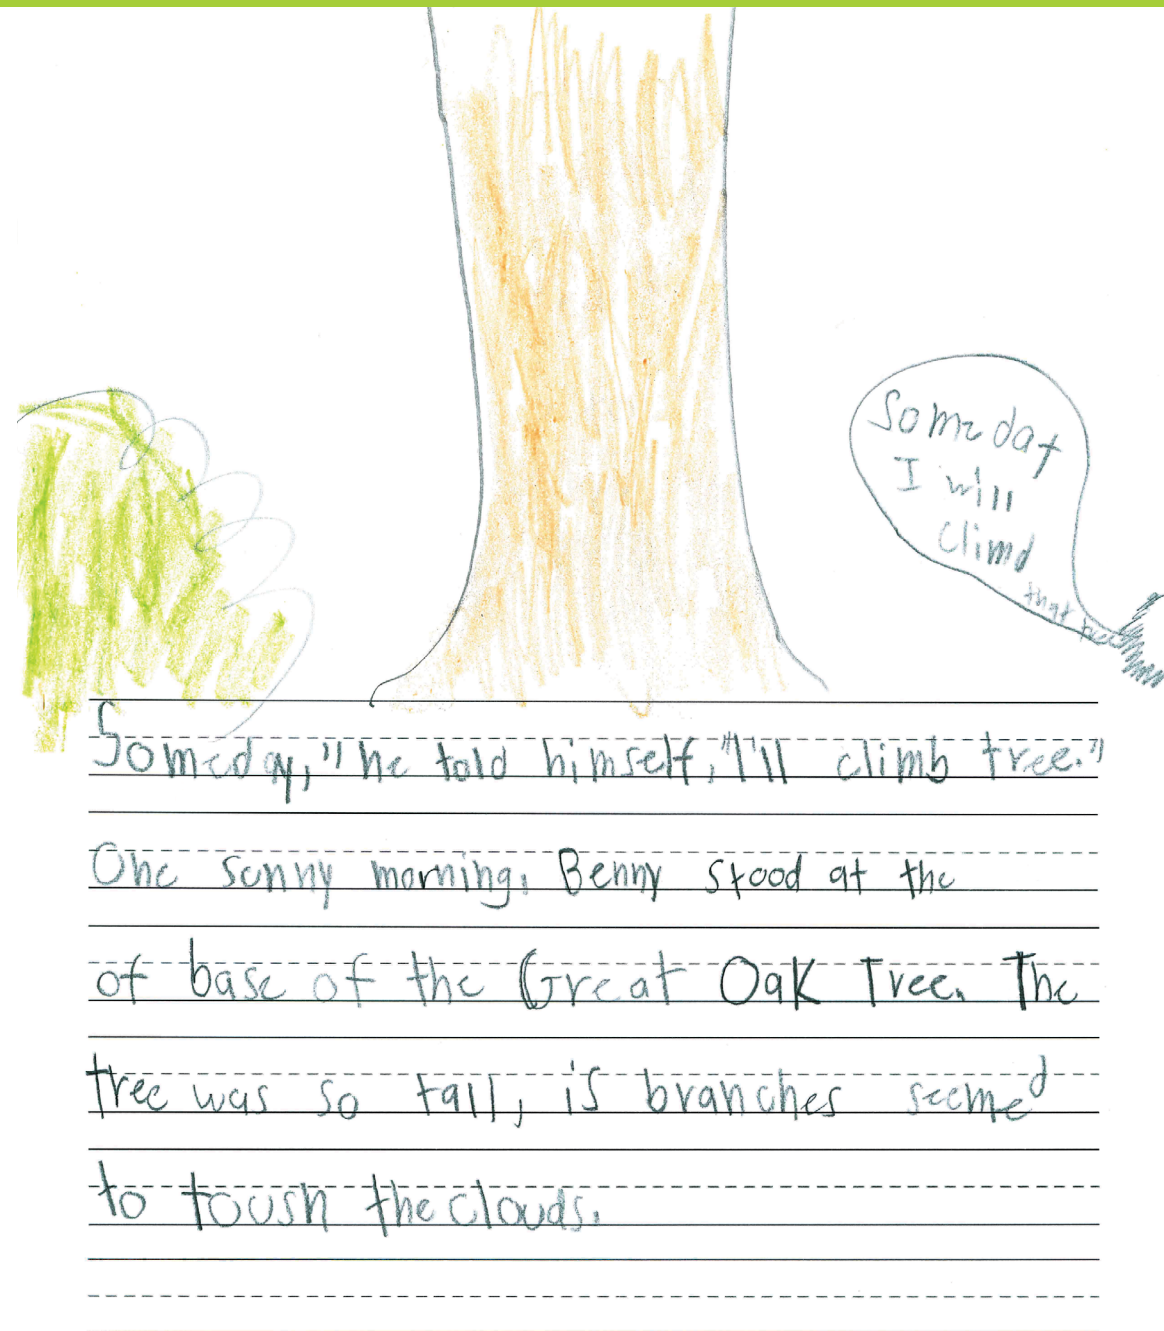 Someday
I will
Climd
that tree
Someday," he told himself, "I'll climb tree."
One sunny morning. Benny stood at the
of base of the Great Oak Tree. The
tree was so tall, is branches seemed
to toush the clouds.